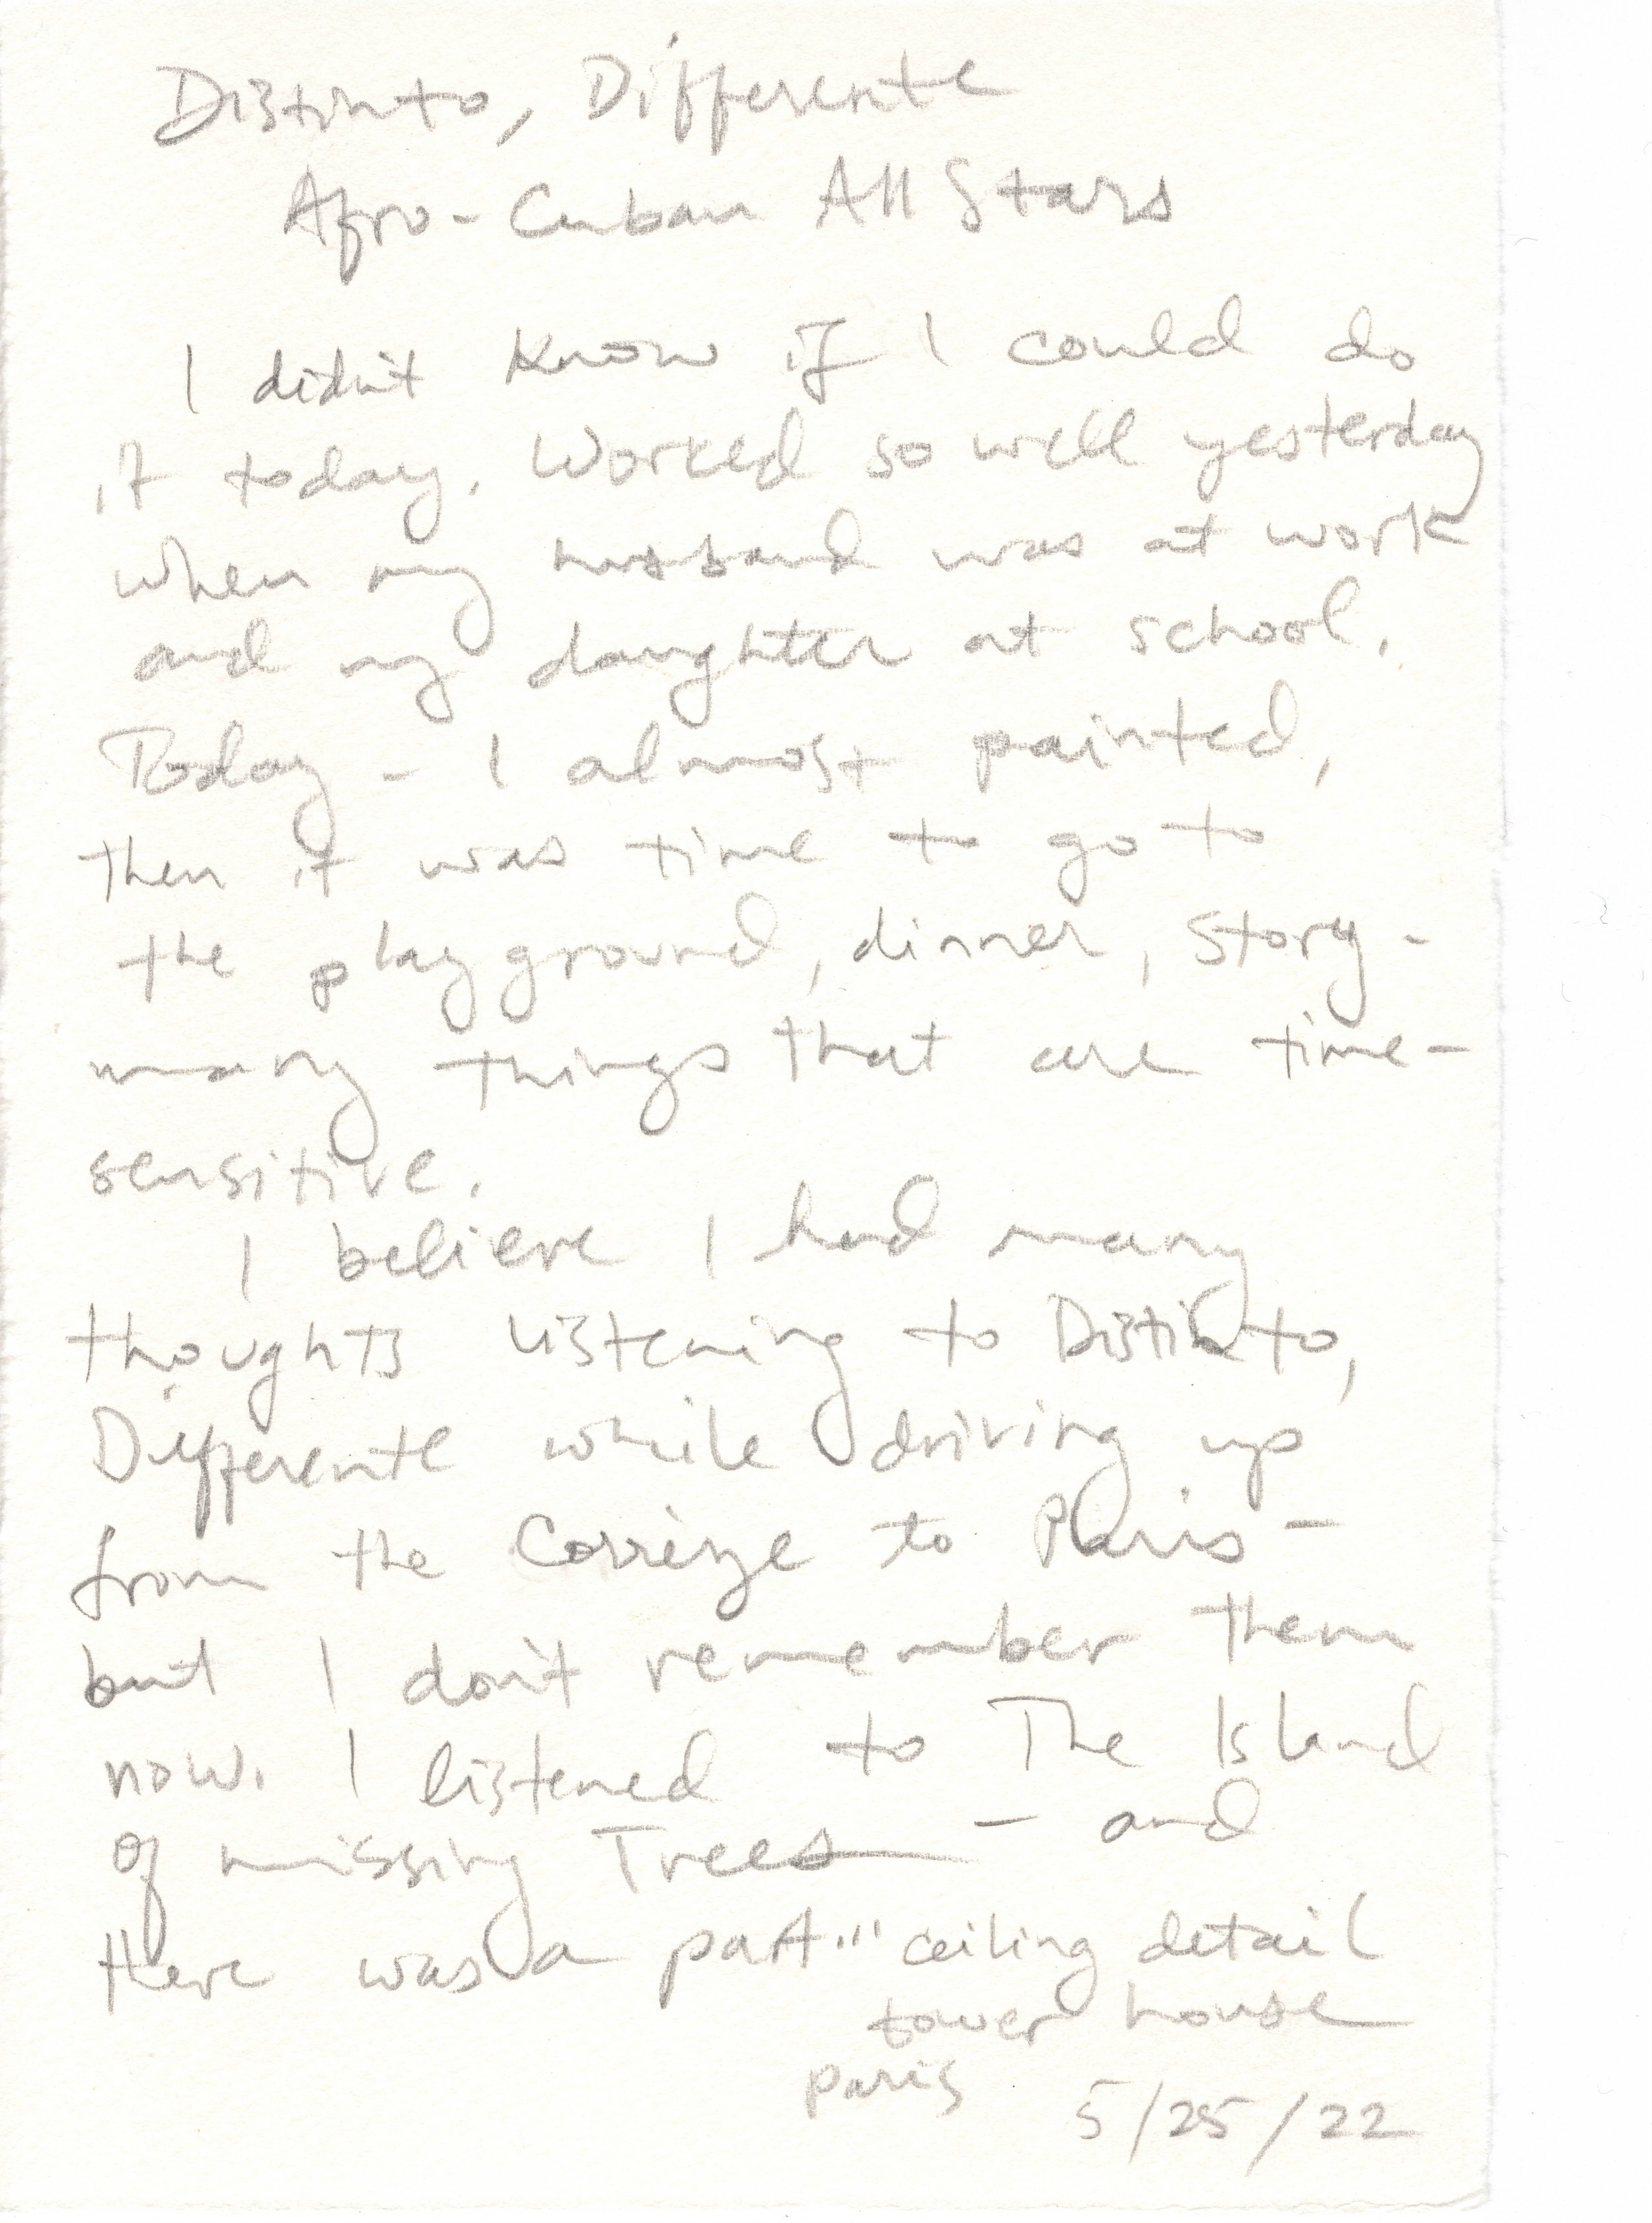 Distinto, Differente
Afro-Cuban All Stars
I didn't know if I could do
it today. Worked so well yesterday
when my husband was at work
and my daughter at school.
Today - I almost painted,
then it was time to go to
the playground, dinner, story -
many things that are time-
sensitive.
I believe I had many
thoughts listening to Distinto,
Differente while driving up
from the Corrèze to Paris -
but I don't remember them
now. I listened to The Island
of missing Trees - and
there was a part... ceiling detail
tower house
paris
5/25/22